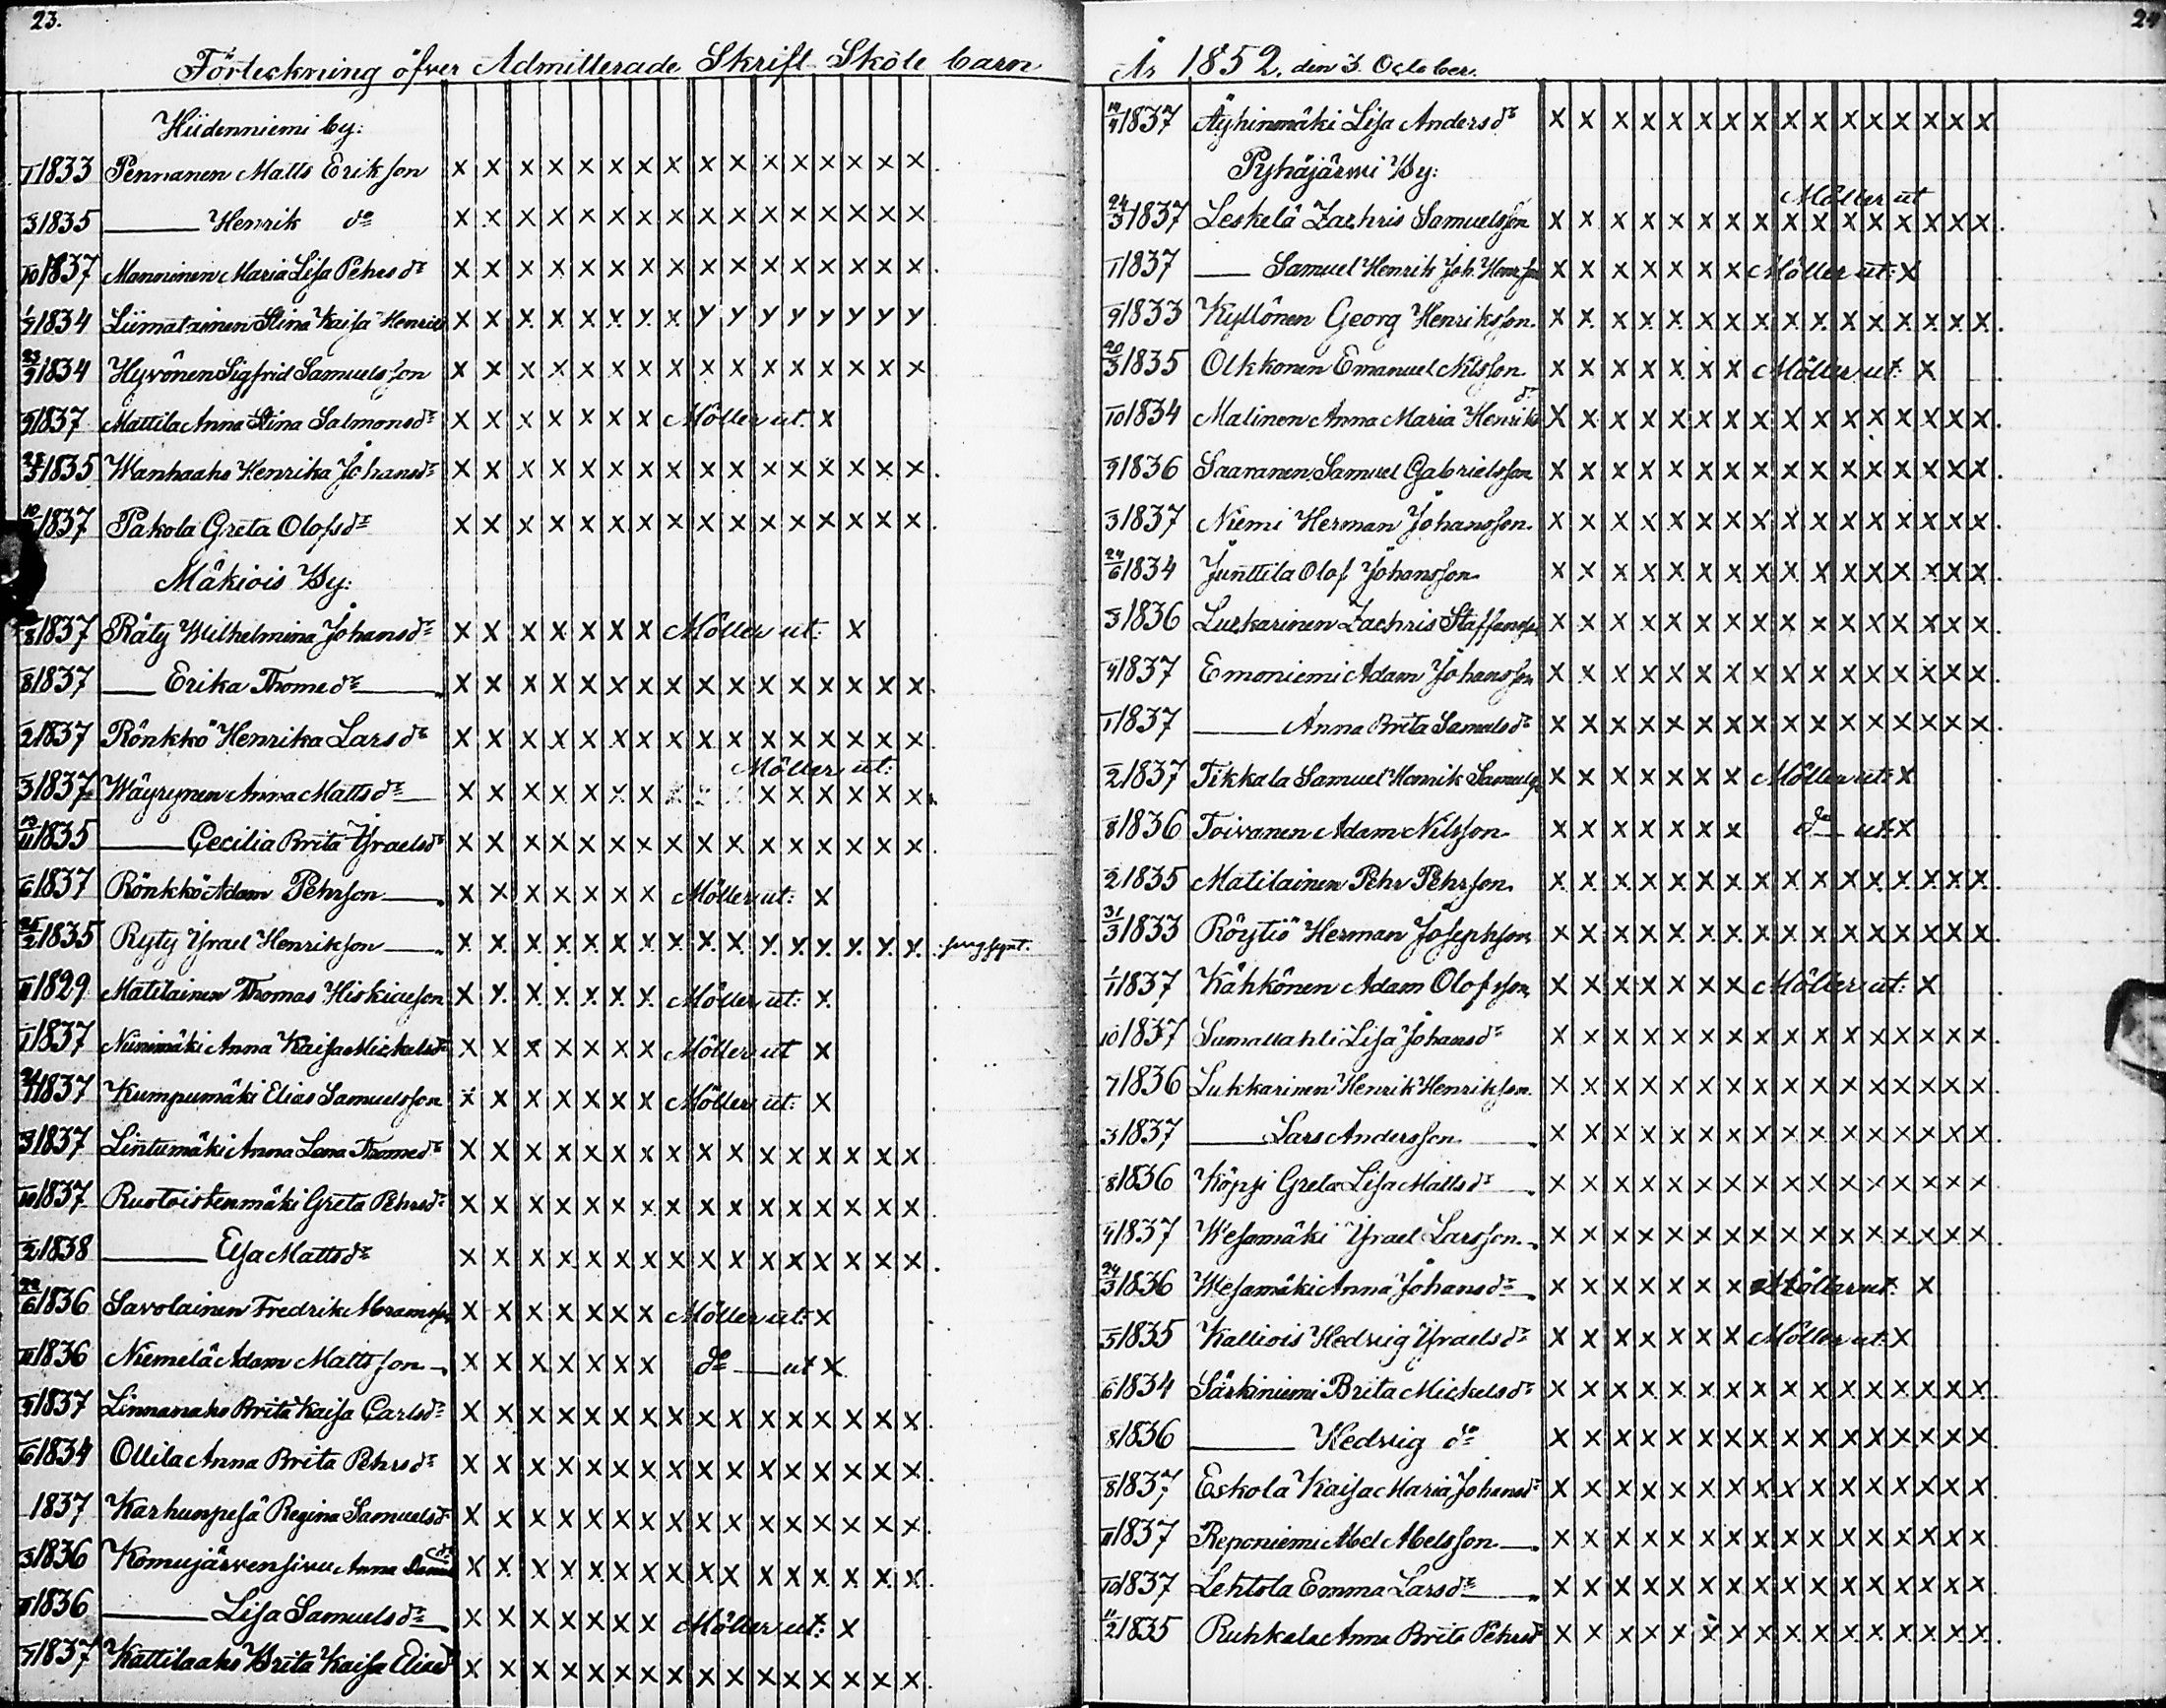 23.
Förteckning öfver Admitterade Skrift Skole barn
Hiidenniemi by:
1 1833 Pennanen Matts Erikson x x x x x x x x x x x x x x x x
3 1835 Henrik do x x x x x x x x x x x x x x x x
10 1837 Manninen Maria Lisa Pehrsdr x x x x x x x x x x x x x x x x
1834 Liimatainen Stina Kaisa Henriks x x x x x y y x y y y y y y y y
1834 Hyvönen Sigfrid Samuelsson x x x x x x x x x x x x x x x x
1837 Mattila Anna Stina Salmonsdr x x x x x x x Möller ut. x
1835 Wanhaaho Henrika Johansdr x x x x x x x x x x x x x x x x
1837 Pakola Greta Olofsdr x x x x x x x x x x x x x x x x
Mäkiois By:
8 1837 Räty Wilhelmina Johansdr x x x x x x x Möller ut: x
8 1837 Erika Thomedr x x x x x x x x x x x x x x x x
2 1837 Rönkkö Henrika Larsdr x x x x x x x x x x x x x x x x
Möller ut:
3 1837 Wäyrynen Anna Mattsdr x x x x x x x x x x x x x
13/11 1835 Cecilia Brita Ysraelsdr x x x x x x x x x x x x x x x x
6 1837 Rönkkö Adam Pehrson x x x x x x x Möller ut: x
25/2 1835 Ryty Ysrael Henrikson x x x x x x x x x x x x x x x x
11 1829 Matilainen Thomas Hiskiaeson x x x x x x x Möller ut: x
1 1837 Niinimäki Anna Kaisa Mickelsdr x x x x x x x Möller ut x
1837 Kumpumäki Elias Samuelsson x x x x x x x Möller ut: x
3 1837 Lintumäki Anna Lena Thomedr x x x x x x x x x x x x x x x x
10 1837 Ruotoistenmäki Greta Pehrsdr x x x x x x x x x x x x x x x x
2 1838 Elsa Mattsdr x x x x x x x x x x x x x x x x
22/6 1836 Savolainen Fredrik Abramsson x x x x x x x Möller ut: x
11 1836 Niemelä Adam Mattsson x x x x x x x do ut x
1837 Linnanaho Brita Kaisa Carlsdr x x x x x x x x x x x x x x x x
6 1834 Ollila Anna Brita Pehrsdr x x x x x x x x x x x x x x x x
1837 Karhunpesä Regina Samuelsdr x x x x x x x x x x x x x x x x
3 1836 Komujärvensivu Anna x x x x x x x x x x x x x x x x
1836 Lisa Samuelsdr x x x x x x x Möller ut: x
1837 Kattilaaho Brita Kaisa Eliaedr x x x x x x x x x x x x x x x x
24
År 1852. den 3. October.
1837 Äyhinmäki Lisa Andersdr x x x x x x x x x x x x x x x x
Pyhäjärwi By:
Möller ut
24/3 1837 Leskelä Zachris Samuelsson x x x x x x x x x x x x x x x x
1 1837 Samuel Henrik Joh. Henrson x x x x x x x Möller ut: x
9 1833 Kyllönen Georg Henriksson. x x x x x x x x x x x x x x x x
20/3 1835 Olkkonen Emanuel Nilsson x x x x x x x Möller ut: x
10 1834 Malinen Anna Maria Henriksdr x x x x x x x x x x x x x x x x
1836 Saaranen Samuel Gabrielsson x x x x x x x x x x x x x x x x
3 1837 Niemi Herman Johansson. x x x x x x x x x x x x x x x x
24/6 1834 Junttila Olof Johansson x x x x x x x x x x x x x x x x
3 1836 Luckarinen Zachris Staffansson x x x x x x x x x x x x x x x x
4 1837 Emoniemi Adam Johansson x x x x x x x x x x x x x x x x
1 1837 Anna Brita Samuelsdr x x x x x x x x x x x x x x x x
2 1837 Tikkala Samuel Henrik Samuels x x x x x x x Möller ut: x
8 1836 Toivanen Adam Nilsson x x x x x x x do ut: x
2 1835 Matilainen Pehr Pehrson. x x x x x x x x x x x x x x x x
31/3 1833 Röytiö Herman Josephson x x x x x x x x x x x x x x x x
1/1 1837 Kähkönen Adam Olofsson x x x x x x x Möller ut: x
10 1837 Lamallahti Lisa Johansdr x x x x x x x x x x x x x x x x
7 1836 Lukkarinen Henrik Henrikson. x x x x x x x x x x x x x x x x
3 1837 Lars Andersson x x x x x x x x x x x x x x x x
8 1836 Köpsi Greta Lisa Mattsdr x x x x x x x x x x x x x x x x
4 1837 Wesamäki Ysrael Larsson x x x x x x x x x x x x x x x x
24/3 1836 Wesamäki Anna Johansdr x x x x x x x Möller ut. x
5 1835 Kalliois Hedvig Ysraelsdr x x x x x x x Möller ut. x
6 1834 Särkiniemi Brita Mickelsdr x x x x x x x x x x x x x x x x
8 1836 Hedvig do x x x x x x x x x x x x x x x x
8 1837 Eskola Kaisa Maria Johansdr x x x x x x x x x x x x x x x x
11 1837 Reponiemi Abel Abelsson x x x x x x x x x x x x x x x x
10 1837 Lehtola Emma Larsdr x x x x x x x x x x x x x x x x
11/2 1835 Ruhkala Anna Brita Pehrsdr x x x x x x x x x x x x x x x x